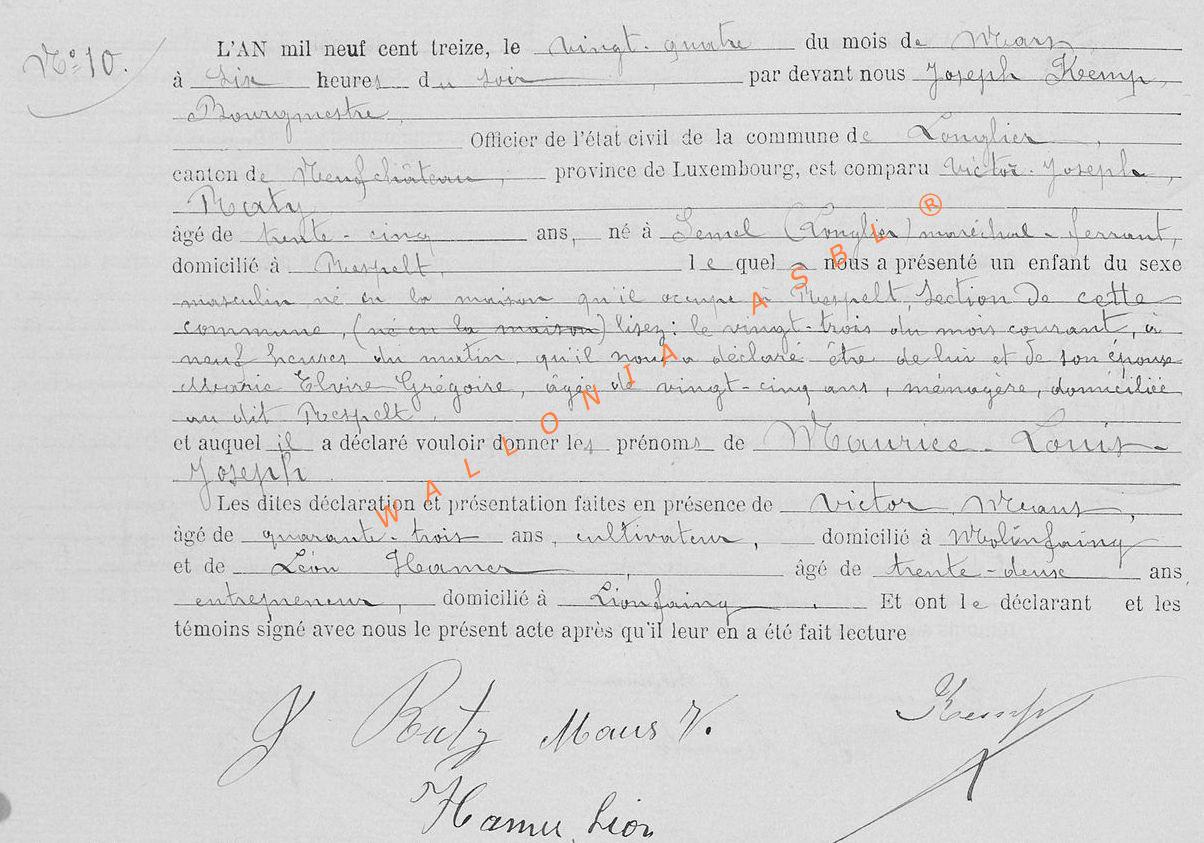 N° 10.
L'AN mil neuf cent treize, le vingt-quatre du mois de Mars
à six heures du soir par devant nous Joseph Kemp,
Bourgmestre,
Officier de l'état civil de la commune de Longlier,
canton de Neufchâteau, province de Luxembourg, est comparu Victor-Joseph,
Raty
âgé de trente-cinq ans, né à Semel (Longlier) maréchal-ferrant,
domicilié à Respelt, lequel nous a présenté un enfant du sexe
masculin né en la maison qu'il occupe à Respelt, section de cette
commune, (né en la maison) lisez: le vingt-trois du mois courant, à
neuf heures du matin, qu'il nous a déclaré être de lui et de son épouse
Marie Elvire Grégoire, âgée de vingt-cinq ans, ménagère, domiciliée
au dit Respelt,
et auquel il a déclaré vouloir donner les prénoms de Maurice-Louis-
Joseph
Les dites déclaration et présentation faites en présence de Victor Maus,
âgé de quarante-trois ans, cultivateur, domicilié à Molinfaing
et de Léon Hamer, âgé de trente-deux ans
entrepreneur, domicilié à Lionfaing. Et ont le déclarant et les
témoins signé avec nous le présent acte après qu'il leur en a été fait lecture
Raty Maus V. Kemp
Hamer Léon
WALLONIA ASBL ®